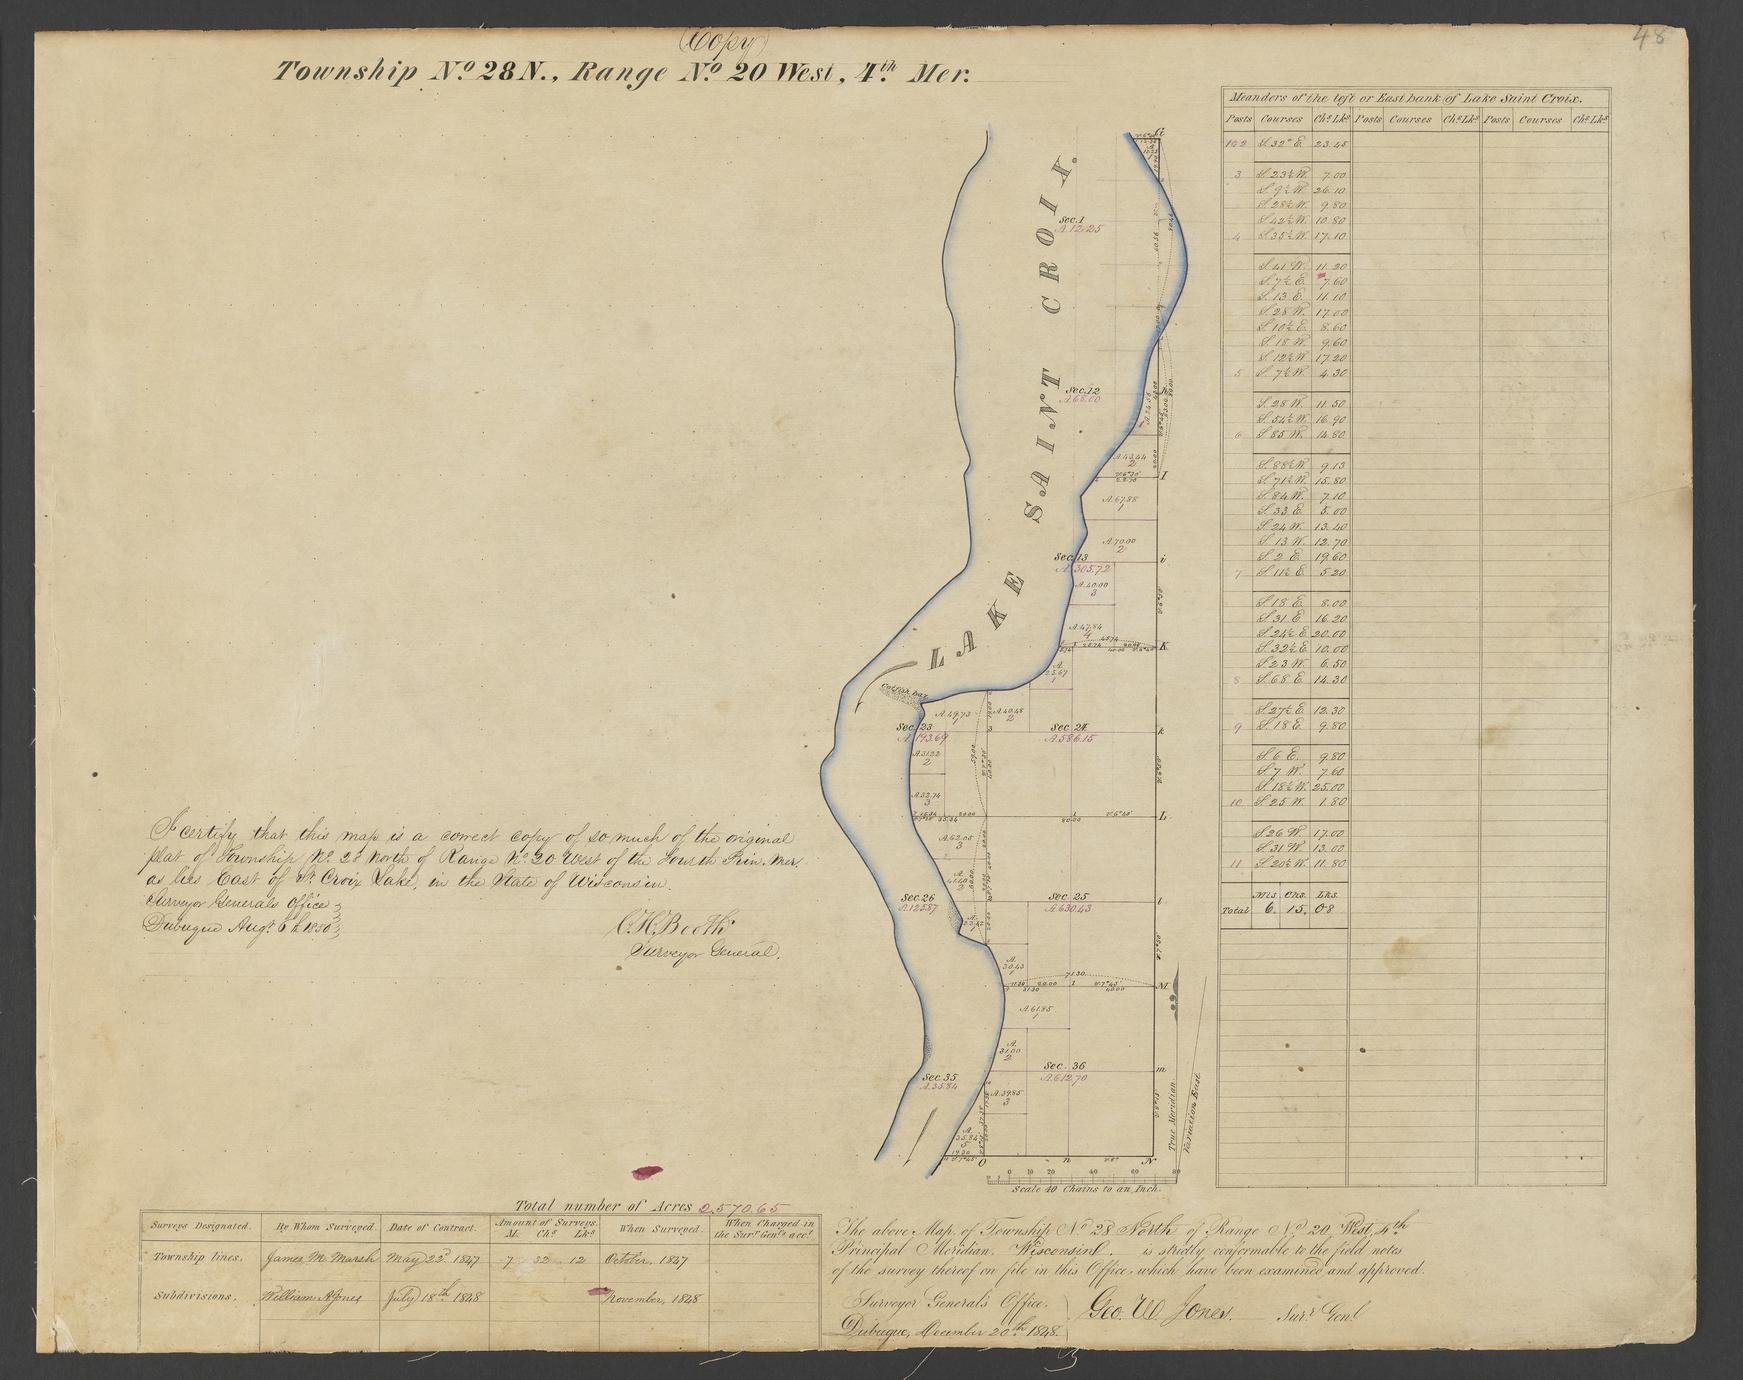 (Copy)
48
Township No. 28 N., Range No. 20 West, 4th Mer.
Meanders of the left or East bank of Lake Saint Croix.
Posts Courses Chs Lks Posts Courses Chs Lks Posts Courses Chs Lks
1&2 S. 32° E. 23.45
3 S. 23½ W. 7.00
S. 9½ W. 26.10
S. 28½ W. 9.80
S. 42½ W. 10.80
4 S. 35½ W. 17.10
S. 41 W. 11.20
S. 7½ E. 7.60
S. 13 E. 11.10
S. 28 W. 17.00
S. 10½ E. 8.60
S. 18 W. 9.60
S. 12½ W. 17.20
5 S. 7½ W. 4.30
S. 28 W. 11.50
S. 54½ W. 16.90
6 S. 85 W. 14.80
S. 88½ W. 9.13
S. 71½ W. 15.80
S. 84 W. 7.10
S. 33 E. 5.00
S. 24 W. 13.40
S. 13 W. 12.70
S. 2 E. 19.60
7 S. 11½ E. 5.20
S. 18 E. 8.00
S. 31 E. 16.20
S. 24½ E. 20.00
S. 32½ E. 10.00
S. 23 W. 6.50
8 S. 68 E. 14.30
S. 27½ E. 12.30
9 S. 18 E. 9.80
S. 6 E. 9.80
S. 7 W. 7.60
S. 18½ W. 25.00
10 S. 25 W. 1.80
S. 26 W. 17.00
S. 31 W. 13.00
11 S. 20½ W. 11.80
Mls. Chs. Lks.
Total 6. 15. 08
LAKE SAINT CROIX.
Sec. 1
A. 12.25
Sec. 12
A. 68.00
A. 24.56
1
A. 43.44
2
I
A. 67.88
1
A. 70.00
2
Sec. 13
A. 305.72
i
A. 40.00
3
A. 47.84
4
K
A.
25.67
1
Catfish bar
A. 49.73
1
A. 40.48
2
Sec. 23
A. 193.69
Sec. 24
A. 586.15
k
A. 51.22
2
A. 32.74
3
L
A. 62.05
3
A.
41.40
2
Sec. 26
A. 125.87
Sec. 25
A. 630.43
l
A.
22.42
1
A.
30.43
1
71.30
M
A. 61.85
1
A.
31.00
2
Sec. 35
A. 35.84
Sec. 36
A. 612.70
m
A. 39.85
3
A.
35.84
5
O n N
True Meridian.
Variation East.
0 10 20 40 60 80
Scale 40 Chains to an Inch.
I certify that this map is a correct copy of so much of the original
plat of Township No. 28 north of Range No. 20 West of the Fourth Prin. Mer.
as lies East of St. Croix Lake, in the State of Wisconsin.
Surveyor Generals Office
Dubuque Augt. 6th 1850
C. H. Booth
Surveyor General.
Total number of Acres 2,570.65
Surveys Designated. By Whom Surveyed. Date of Contract. Amount of Surveys. M. Chs. Lks. When Surveyed. When Charged in the Surr. Genls. acct.
Township lines. James M. Marsh May 22d 1847 7 32 12 October, 1847
Subdivisions. William A Jones July 18th 1848 November, 1848
The above Map of Township No. 28 North of Range No. 20, West, 4th
Principal Meridian, Wisconsin, is strictly conformable to the field notes
of the survey thereof on file in this Office, which have been examined and approved.
Surveyor General's Office,
Dubuque, December 20th 1848.
Geo. W. Jones. Surr. Genl.